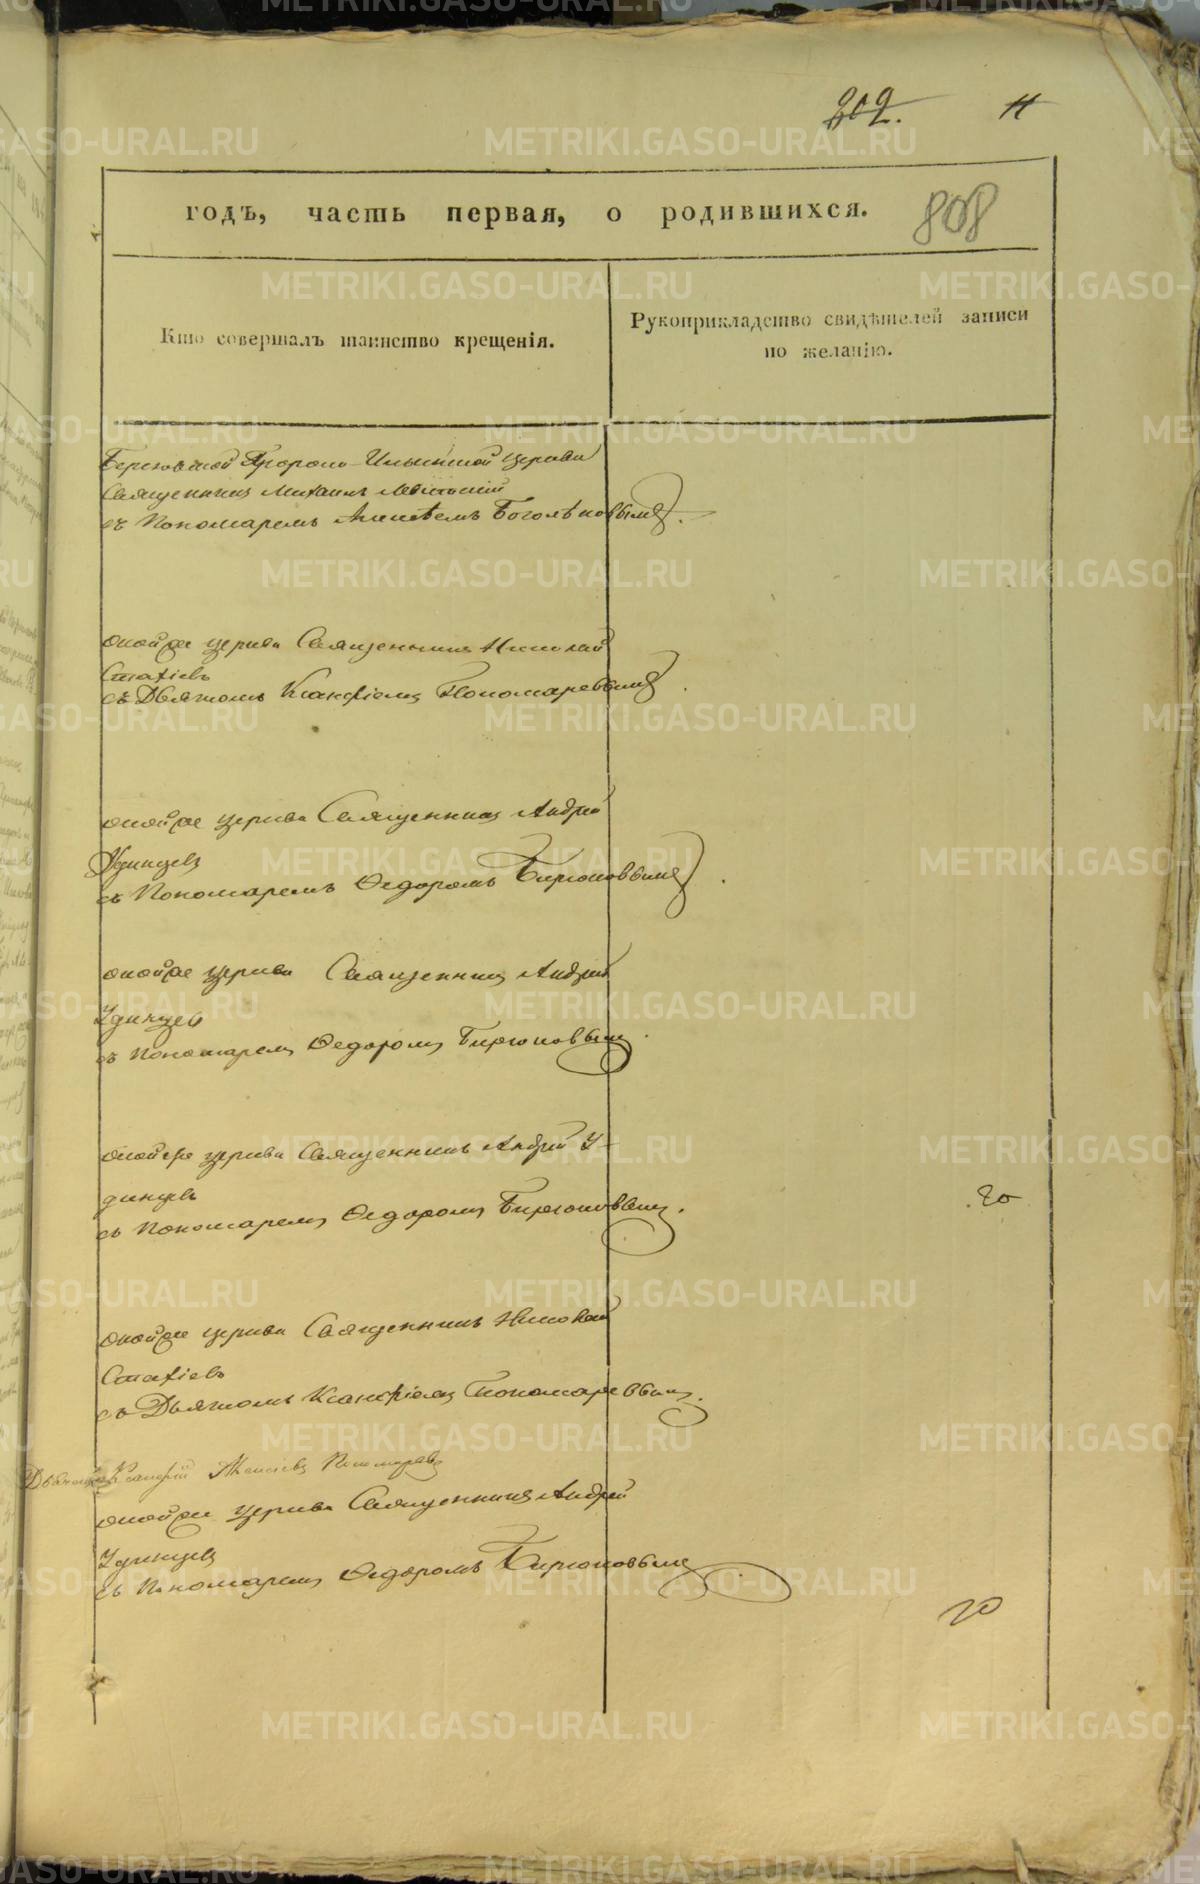 202. 11
годъ, часть первая, о родившихся. 808
Кто совершалъ таинство крещенія.
Рукоприкладство свидѣтелей записи
по желанію.
Пророко-Ильинской церкви
Священникъ Михаилъ
съ Пономаремъ Алексѣемъ
оной же церкви Священникъ Николай
Статіевъ
съ Дьячкомъ Ксанфіемъ Пономаревымъ.
оной же церкви Священникъ Андрей
Удинцевъ
съ Пономаремъ Ѳедоромъ Бирюковымъ.
оной же церкви Священникъ Андрей
Удинцевъ
съ Пономаремъ Ѳедоромъ Бирюковымъ.
оной же церкви Священникъ Андрей У-
динцевъ
съ Пономаремъ Ѳедоромъ Бирюковымъ.
оной же церкви Священникъ Николай
Статіевъ
съ Дьячкомъ Ксанфіемъ Пономаревымъ.
Дьячокъ Ксанфій Алексѣевъ Пономаревъ
оной же церкви Священникъ Андрей
Удинцевъ
съ Пономаремъ Ѳедоромъ Бирюковымъ
METRIKI.GASO-URAL.RU